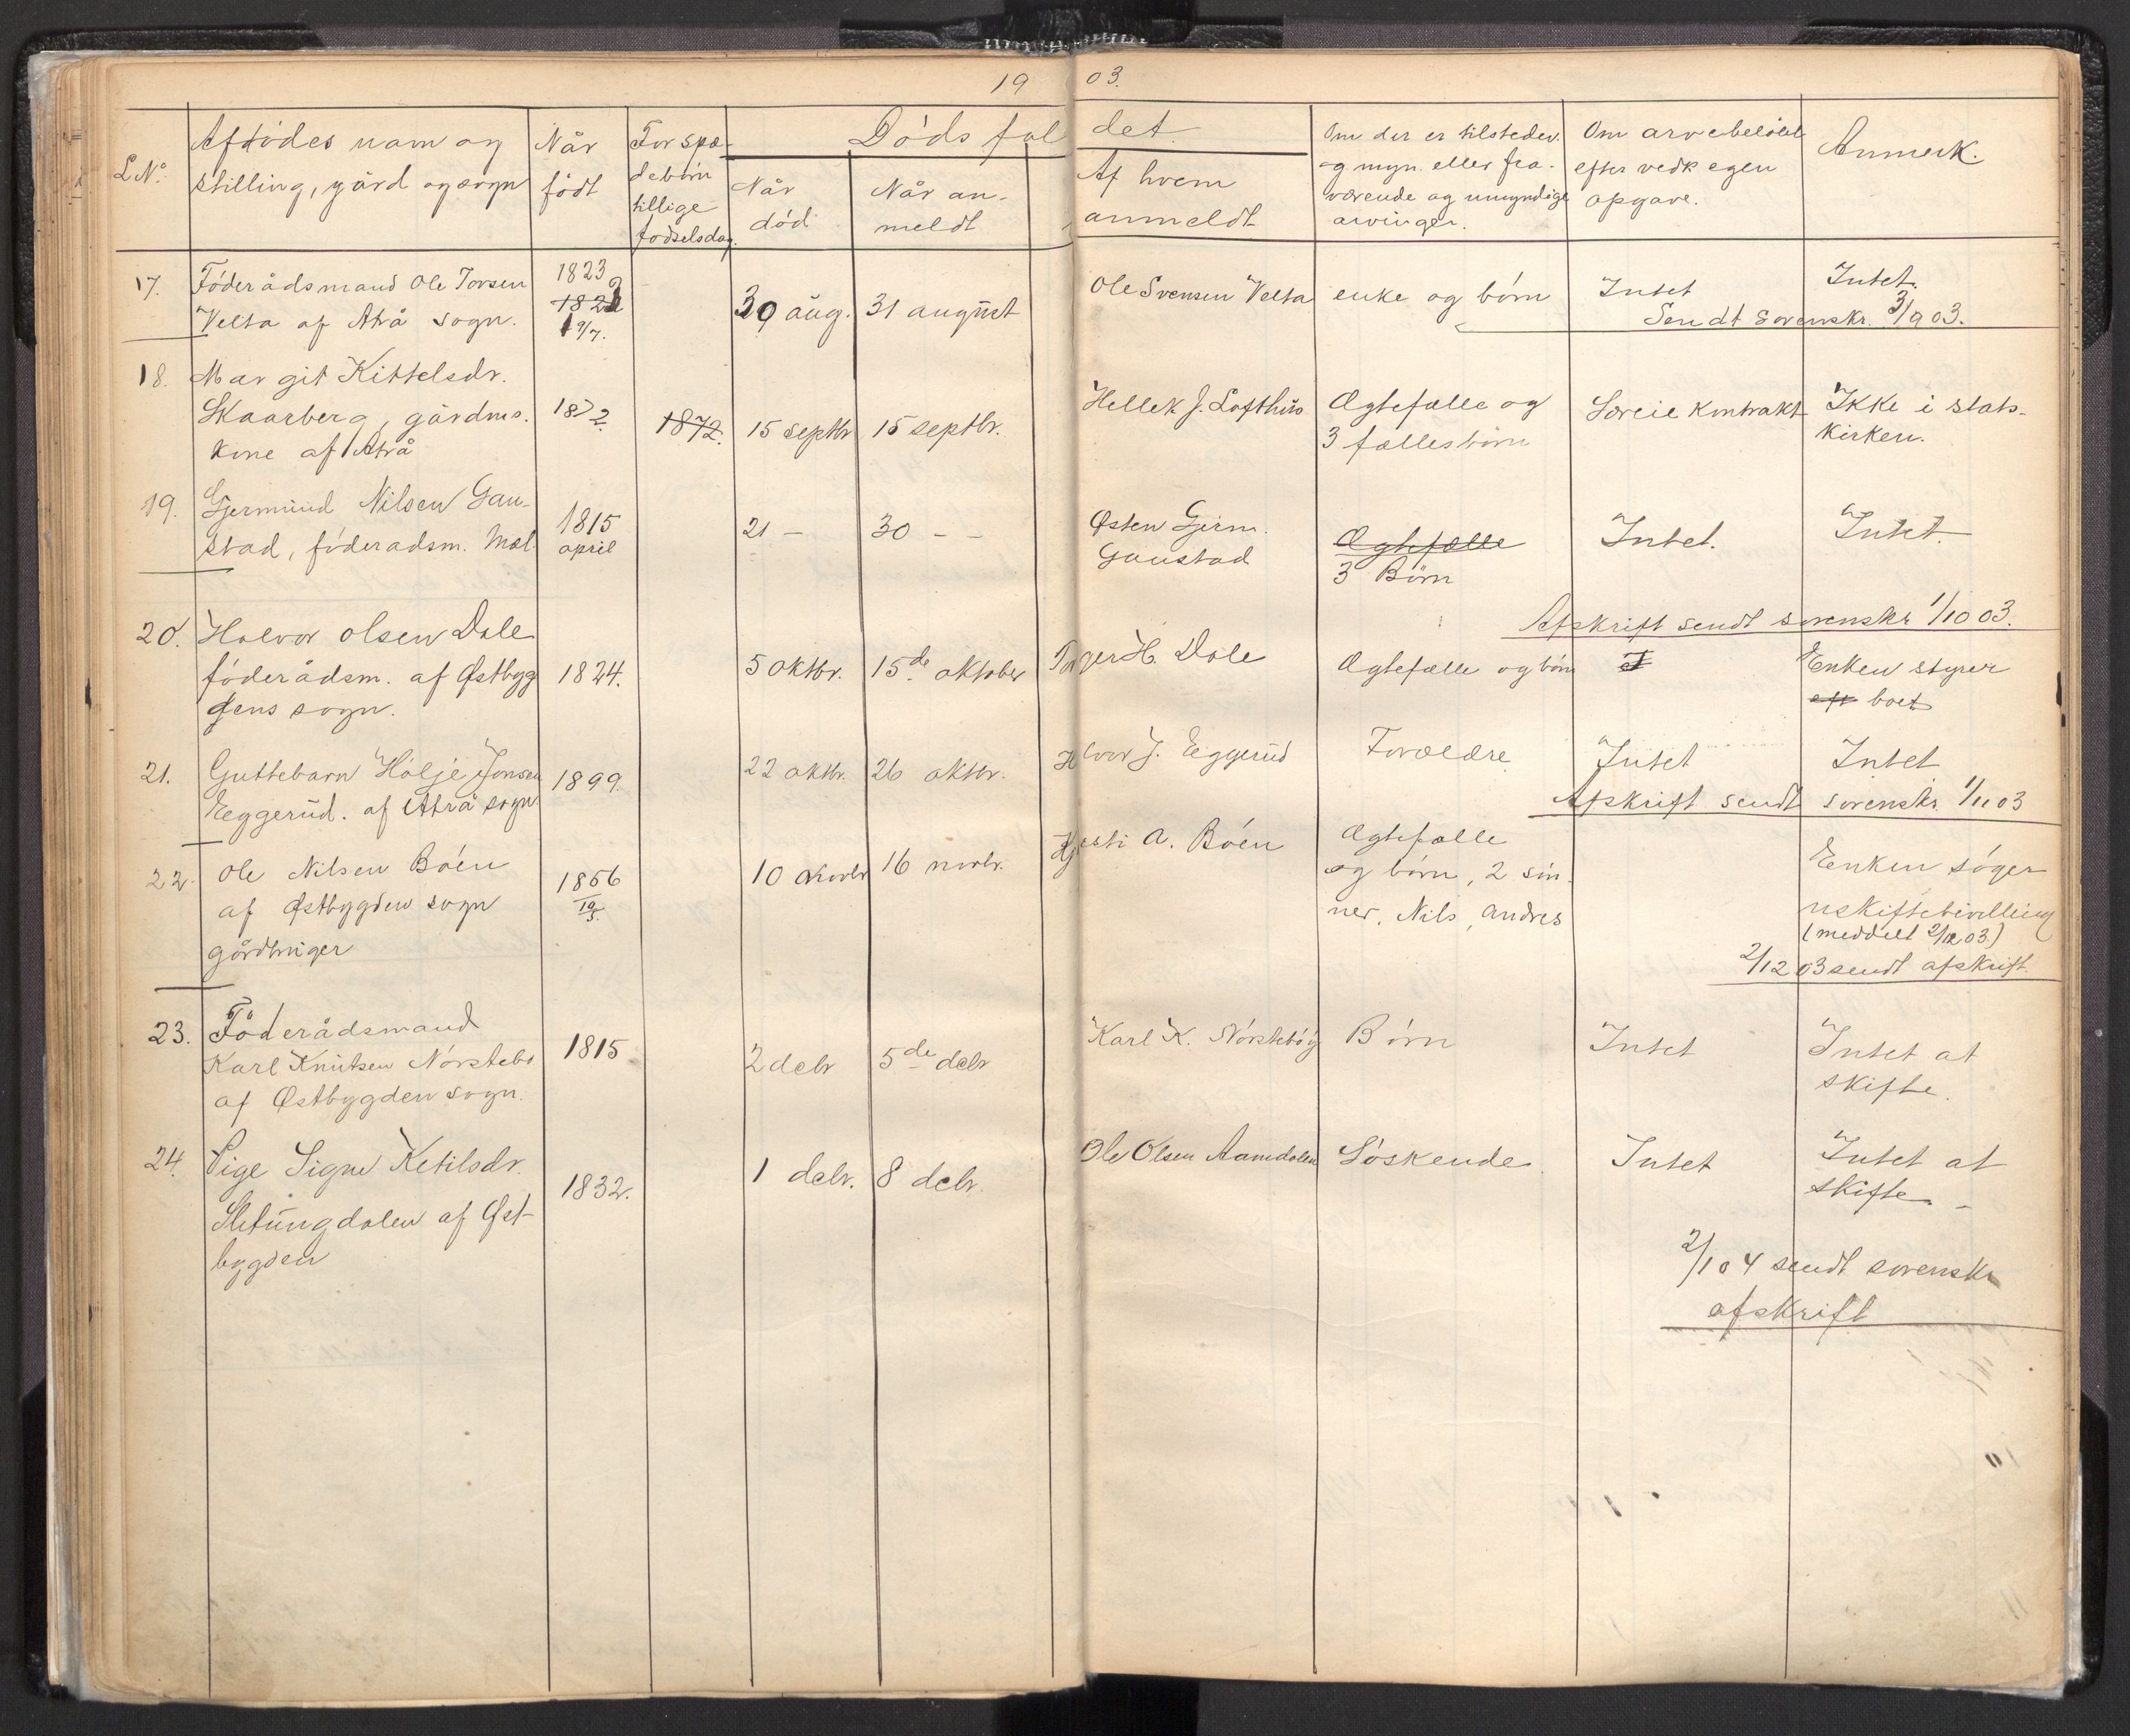 19 03.
L No.
Afdödes navn og
stilling, gård og sogn
Når
født
For spæ-
debörn
tillige
fødselsdag.
Döds fal det
Når
död
Når an-
meldt
Af hvem
anmeldt
Om der er tilstedev.
og myn. eller fra-
værende og umyndige
arvinger.
Om arvebelöbet
efter vedk egen
opgave.
Anmerk.
17. Föderådsmand Ole Torsen
Velta af Atrå sogn.
1823
19/7.
30 aug. 31 august
Ole Svensen Velta enke og börn Intet Intet.
Sendt sorenskr. 3/9 03.
18. Margit Kittelsdr.
Skaarberg, gårdms.
kone af Atrå
1872
1872. 15 septbr 15 septbr.
Hellek J. Lofthus Ægtefælle og
3 fællesbörn
Særeie kontrakt Ikke i stats-
kirken.
19. Gjermund Nilsen Gau-
stad, föderadsm. Mæl.
1815
april
21 - 30 - -
Østen Gjerm.
Gaustad
Ægtefælle
3 Börn
Intet. Intet.
Afskrift sendt sorenskr 1/10 03.
20. Halvor Olsen Dale
föderådsm. af Østbyg
dens sogn.
1824.
5 oktbr. 15de oktober
H. Dale Ægtefælle og börn I Enken styrer
eft boet
21. Guttebarn Hölje Jonsen
Eggerud. af Atrå sogn
1899.
22 oktbr. 26 oktbr.
J. Eggerud Forældre Intet Intet
Afskrift sendt sorenskr. 1/11 03
22. Ole Nilsen Böen
af Østbygden sogn
gårdbruger
1856
19/3.
10 novbr 16 novbr.
A. Böen Ægtefælle
og börn, 2 sön-
ner, Nils, Andres
Enken söger
uskiftebevilling
(meddelt 2/12 03.)
2/12 03 sendt afskrift.
23. Föderådsmand
Karl Knutsen Nörstebö
af Østbygden sogn.
1815
2 debr 5de debr
Karl K. Nörstebö Börn Intet Intet at
skifte.
24. Pige Signe Ketilsdr.
Sletungdalen af Øst-
bygden
1832.
1 debr. 8 debr.
Ole Olsen Aamdalen Söskende. Intet Intet at
skifte. -
2/1 04 sendt sorenskr
afskrift